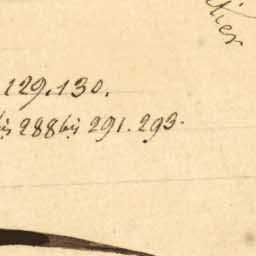 129.130.
bis 288 bis 291. 293.